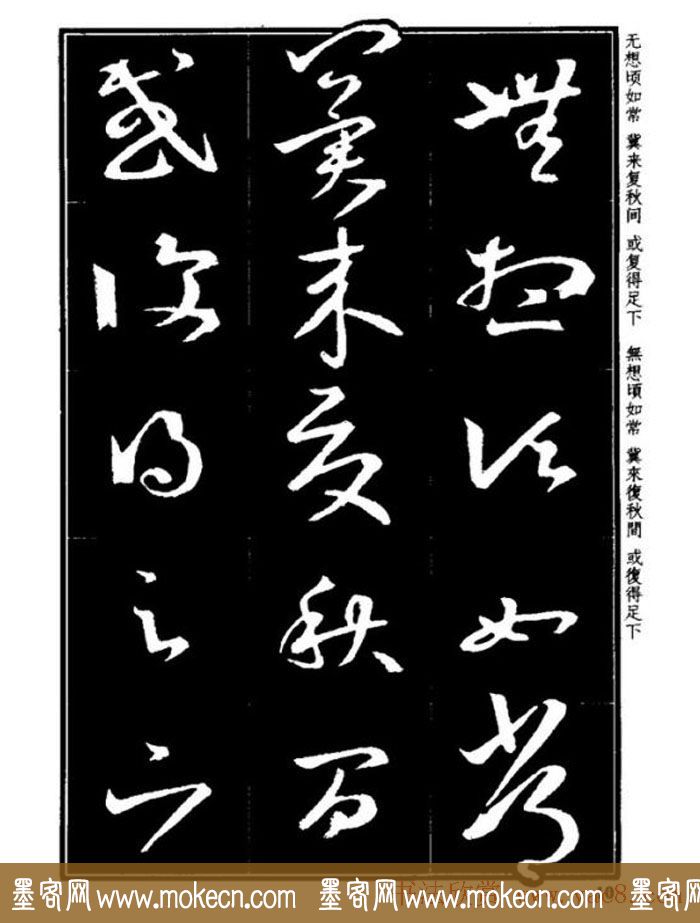 無想頃如常
冀来復秋間
或復得足下
无想顷如常 冀来复秋间 或复得足下 無想頃如常 冀來復秋間 或復得足下
墨客网 www.mokecn.com 墨客网 www.mokecn.com 墨客网 www.mokecn.com